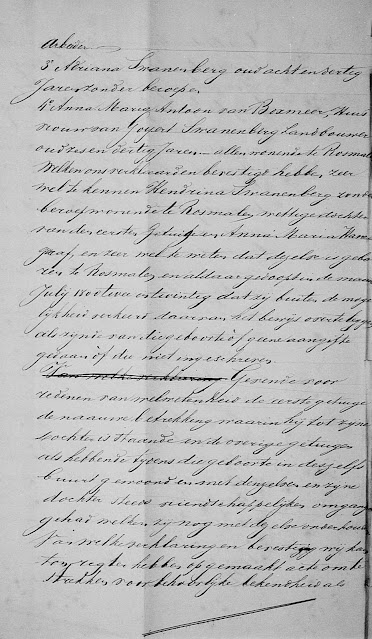 Arbeider
3° Adriana Swanenberg oud acht en dertig
Jaren zonder beroep
4° Anna Maria Antoon van Boxmeer, Huis
vrouw van Goyert Swanenberg Landbouwer
oud zes en dertig Jaren – allen wonende te Rosmalen
Welken ons verklaarden bevestigd hebben, zeer
wel te kennen Hendrina Swanenberg zonder
beroep wonende te Rosmalen, wettige dochter
van den eersten Getuige en Anna Maria Ham
graaf, en zeer wel te weten dat dezelve is gebo
ren te Rosmalen, en aldaar gedoopt in de maand
Julij 18 en twee en twintig dat zij buiten de moge
lijkheid verkeerd daarvan het bewijs over te leggen
als zijnde van die geboorte of geene aangifte
gedaan of die niet ingeschreven
Van welke verklaring Gevende voor
redenen van welwetenheid de eerste getuige
de naauwe betrekking waarin hij tot zijne
dochter is staande en de overige getuigen
als hebbende tijdens die geboorte in dezelfs
buurt gewoond en met denzelven en zijne
dochter steeds vriendschappelijken omgang
gehad welken zij nog met dezelve onderhouden
Van welke verklaring en bevestiging wij kan
ton regter hebben opgemaakt acte om te
strekken voor behoorlijke bekendheid als